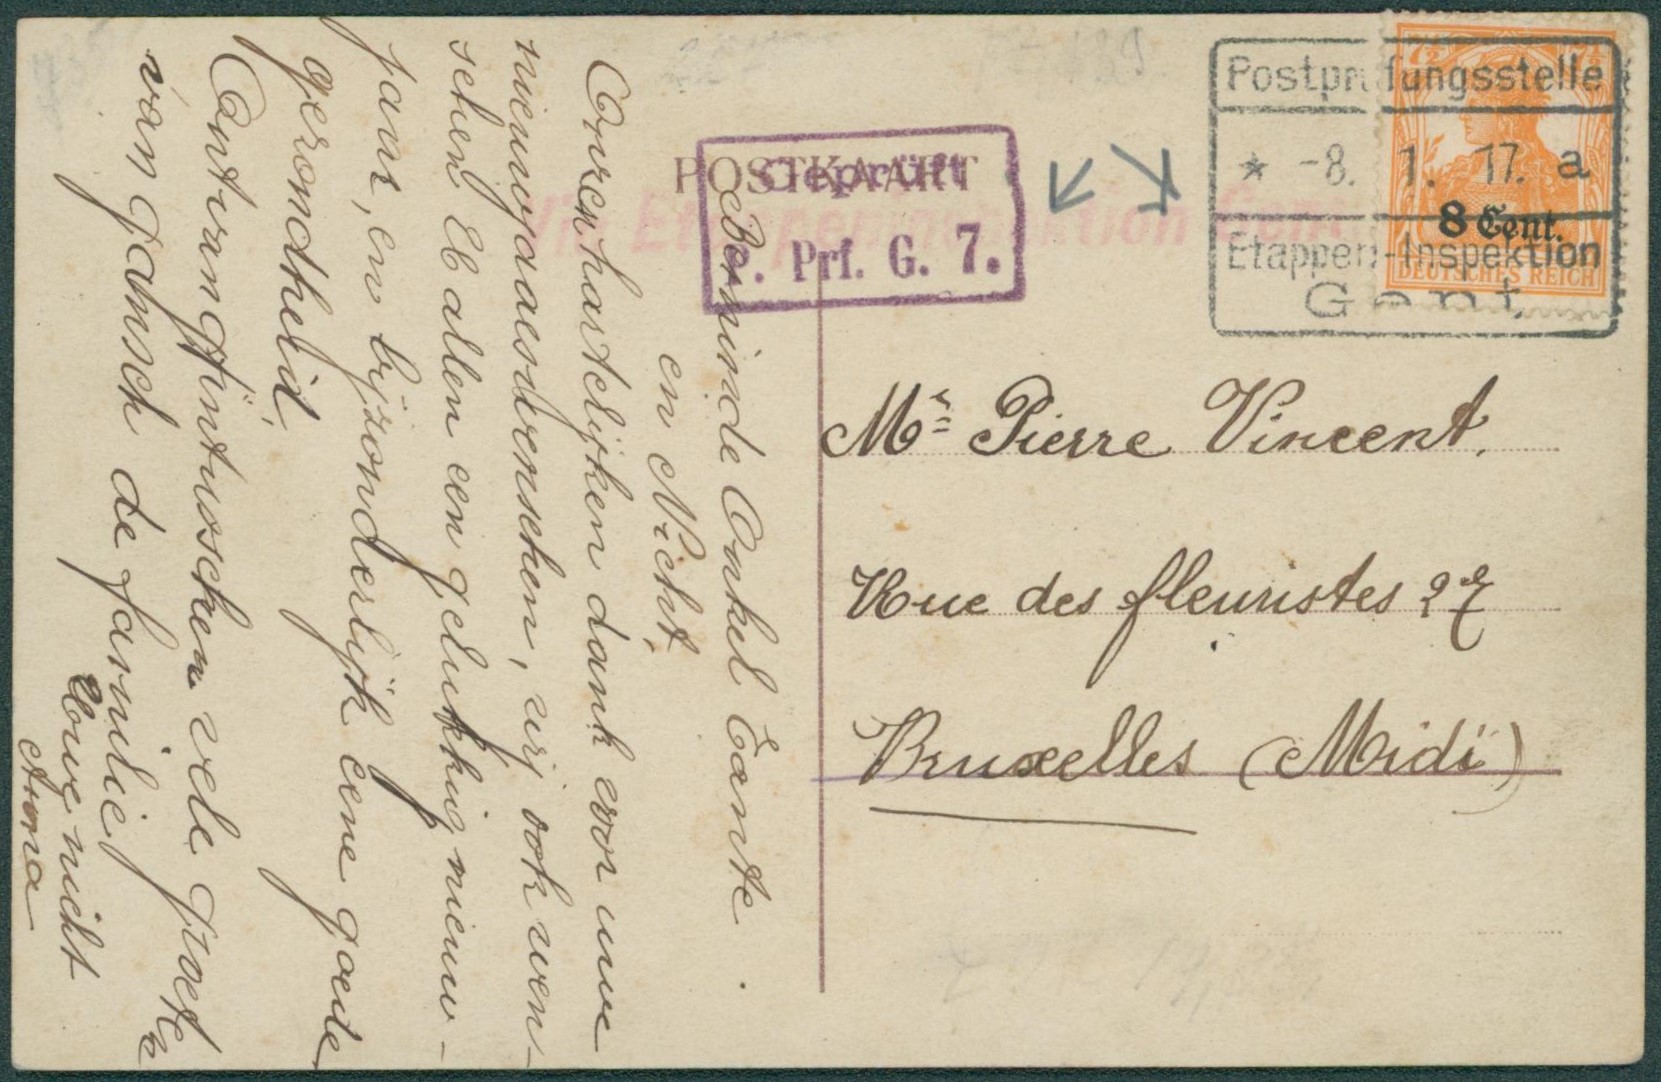 POSTKAART
Geprüft
P. Prf. G. 7.
Via Etappeninspektion Gent
Postprüfungsstelle
* -8. 1. 17. a
Etappen-Inspektion
Gent
7½ 7½
8 Cent.
DEUTSCHES REICH
Mr Pierre Vincent.
Rue des fleuristes 27
Bruxelles (Midi)
Beminde Onkel Tante
en Nicht,
Onzen hartelijken dank voor uwe
nieuwjaarswenschen, wij ook wen-
schen U allen een gelukkig nieuw-
jaar, en bijzonderlijk eene goede
gezondheid.
Ontvangt intusschen vele groeten
van gansch de familie,
Uwe nicht
Anna